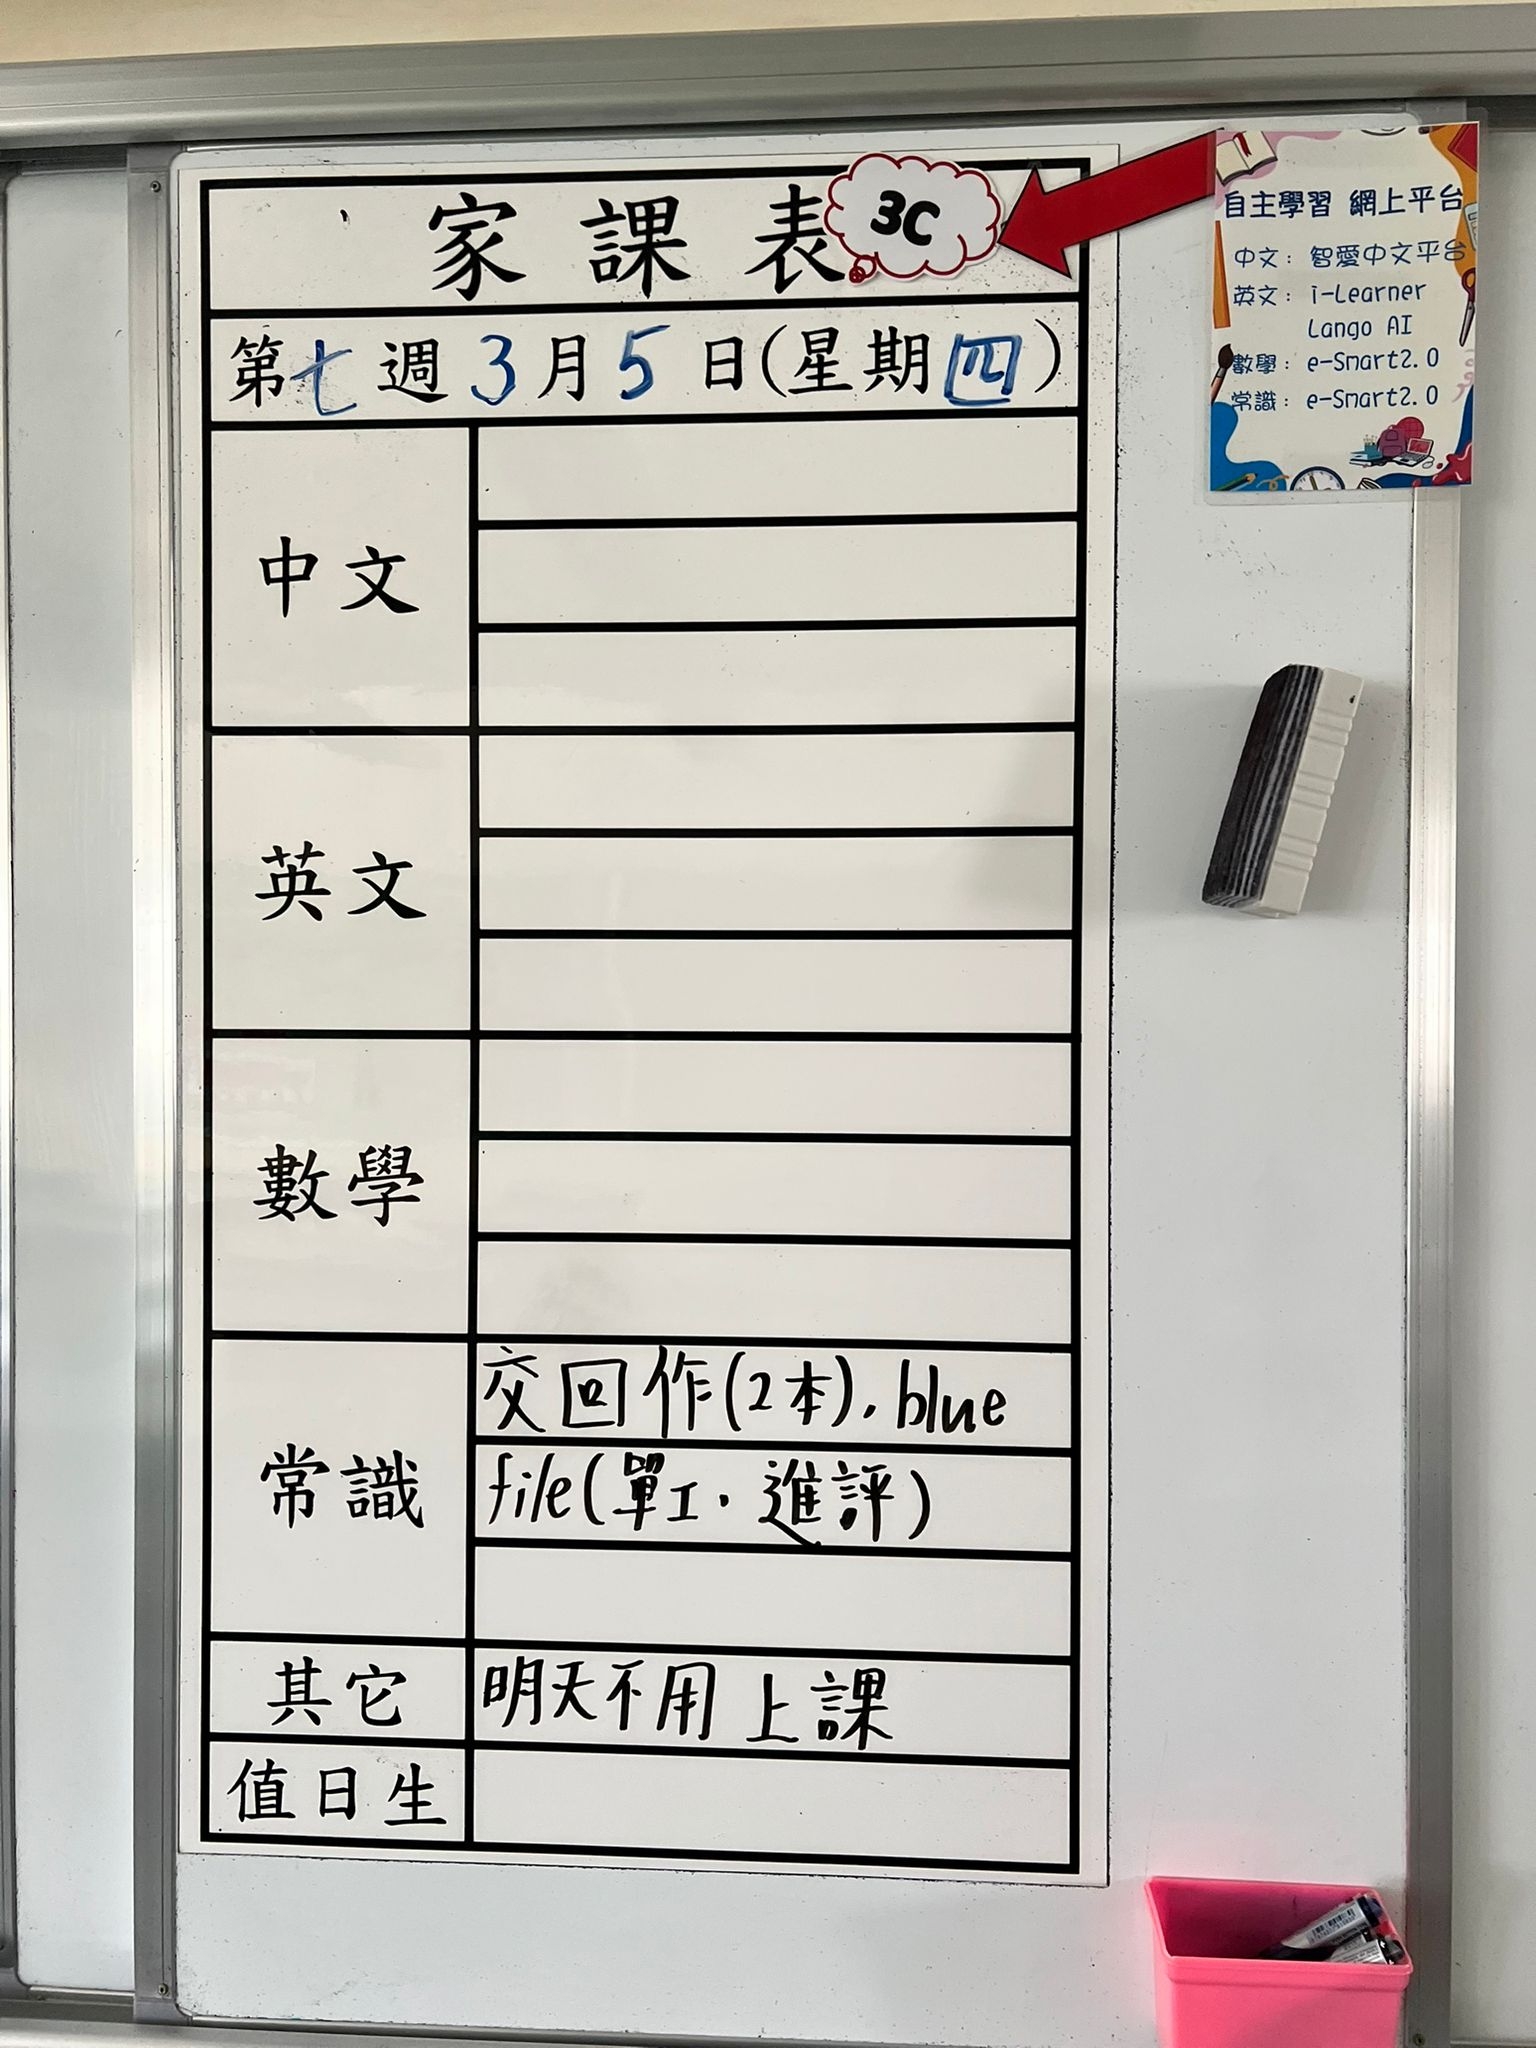 家課表
3C
第七週3月5日(星期四)
中文
英文
數學
常識
交回作(2本), blue
file(單工·進評)
其它
明天不用上課
值日生
自主學習 網上平台
中文：智愛中文平台
英文：i-Learner
Lango AI
數學：e-Smart2.0
常識：e-Smart2.0